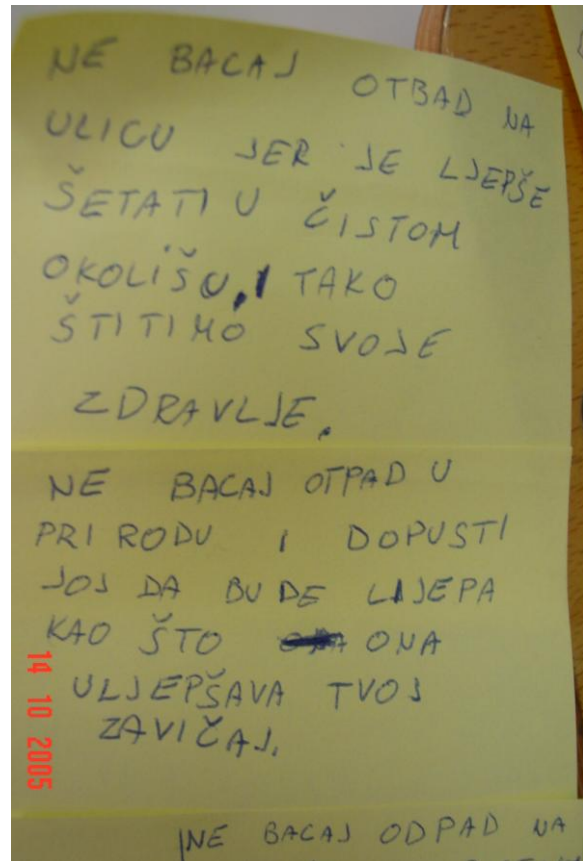 NE BACAJ OTBAD NA
ULICU JER JE LJEPŠE
ŠETATI U ČISTOM
OKOLIŠU, I TAKO
ŠTITIMO SVOJE
ZDRAVLJE.
NE BACAJ OTPAD U
PRIRODU I DOPUSTI
JOJ DA BUDE LIJEPA
KAO ŠTO ONA
ULJEPŠAVA TVOJ
ZAVIČAJ.
14 10 2005
NE BACAJ ODPAD NA